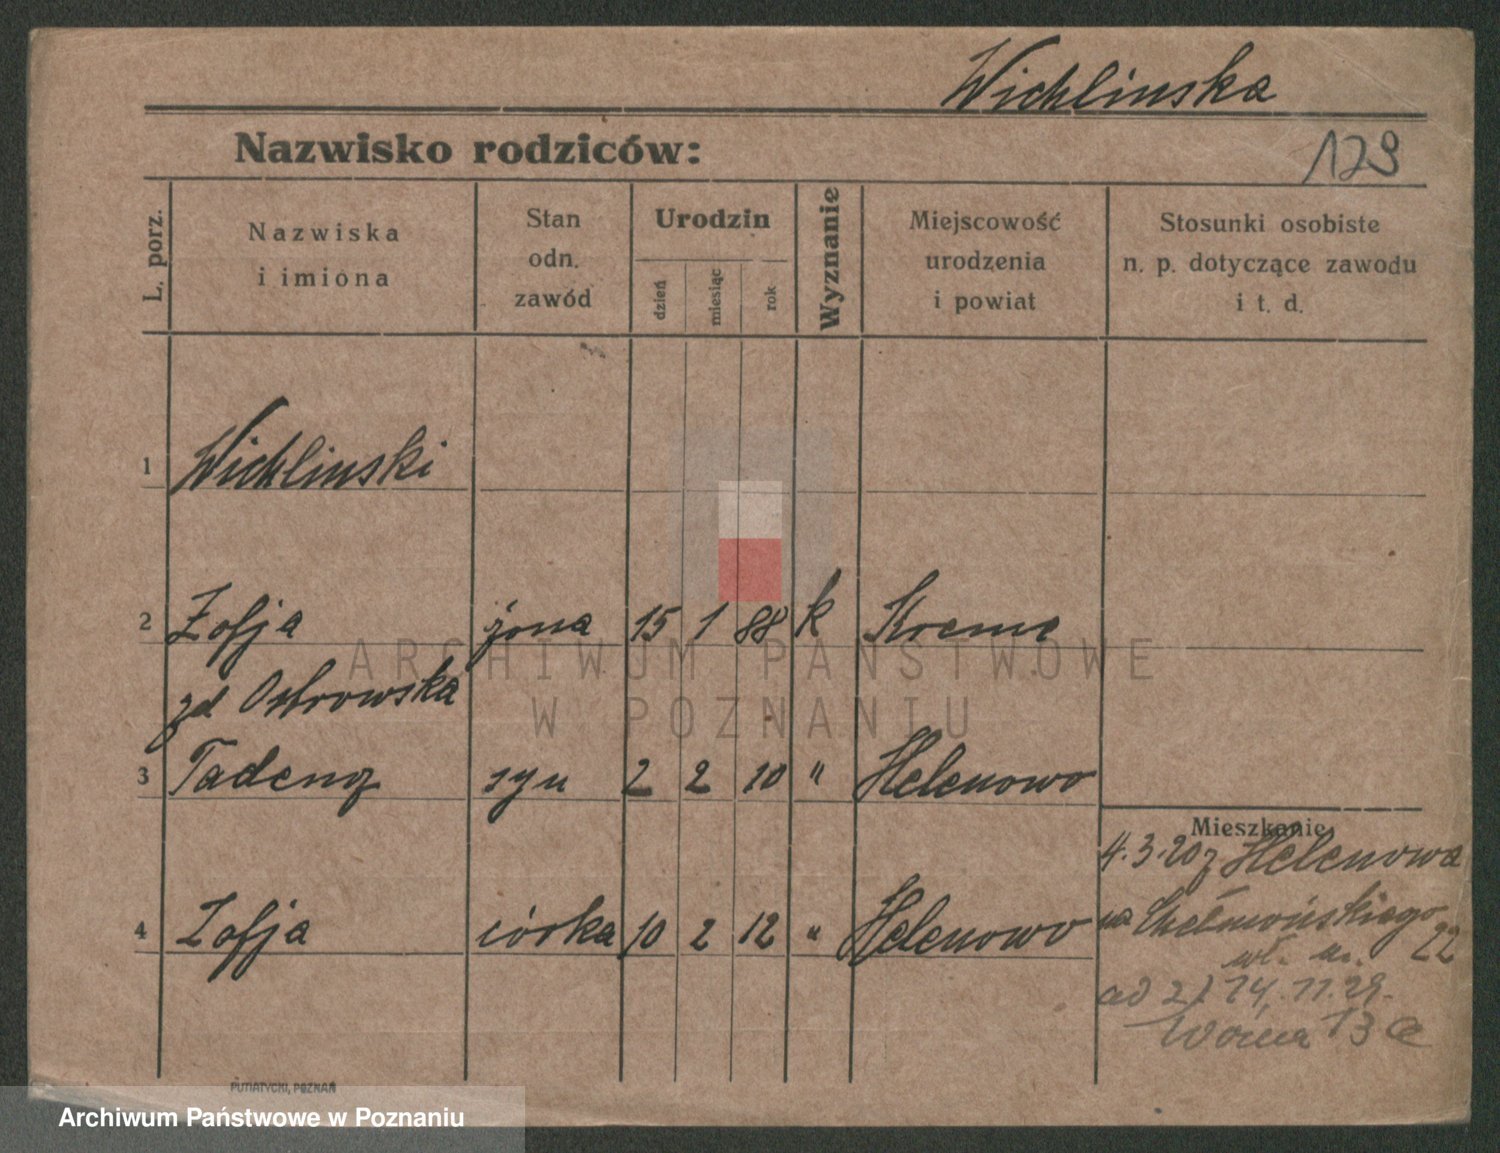 Wichlinska
Nazwisko rodziców:
129
L. porz.
Nazwiska
i imiona
Stan
odn.
zawód
Urodzin
dzień
miesiąc
rok
Wyznanie
Miejscowość
urodzenia
i powiat
Stosunki osobiste
n. p. dotyczące zawodu
i t. d.
1 Wichlinski
2 Zofja żona 15 1 88 k
zd Ostrowska
3 Tadeusz syn 2 2 10 " Helenowo
4 Zofja córka 10 2 12 " Helenowo
Mieszkanie
4.3.20 z Helenowa
na Chełmońskiego
22
ad 2) 14.11.29.
13
PUTIATYCKI, POZNAŃ
ARCHIWUM PAŃSTWOWE
W POZNANIU
Archiwum Państwowe w Poznaniu